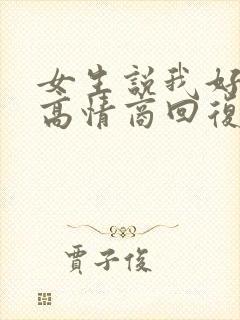 女生説我好
高情商回復
賈子俊